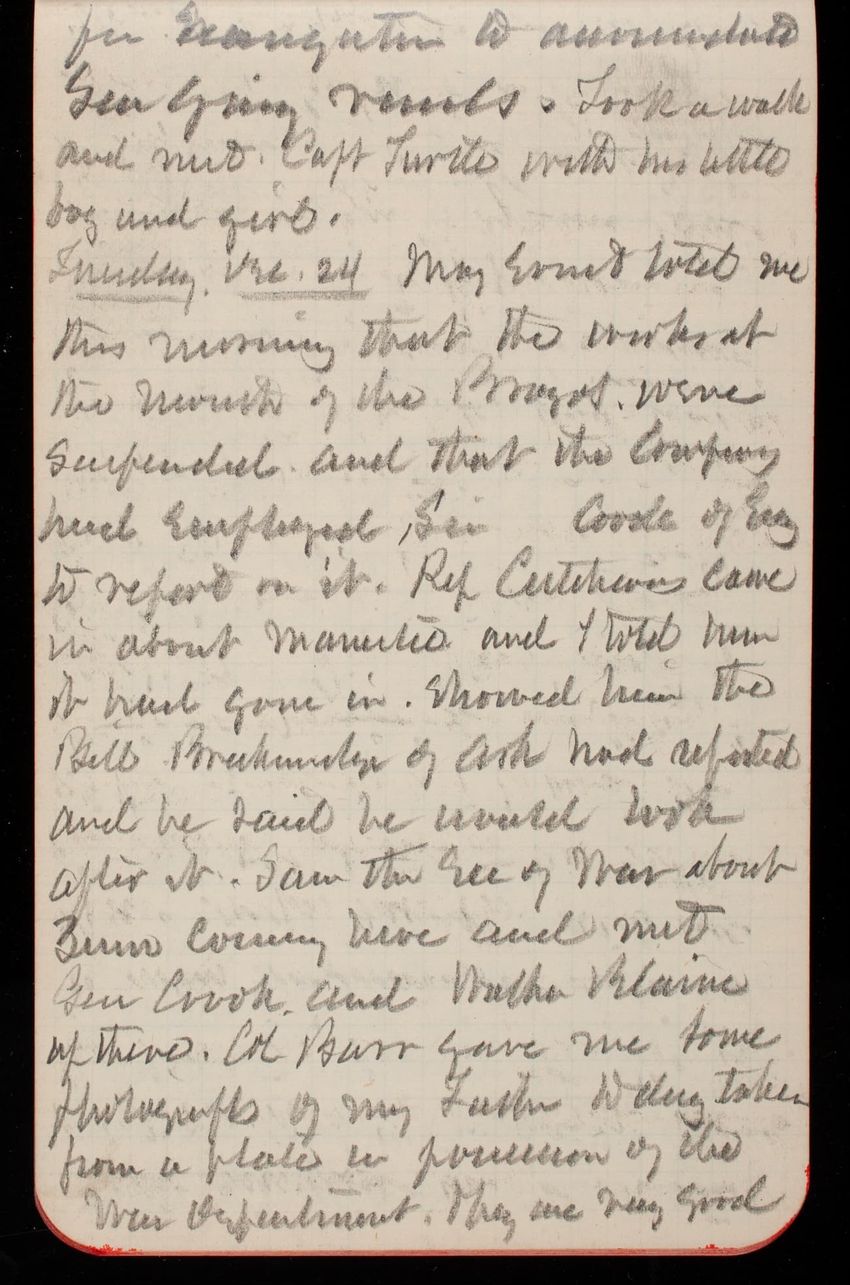 for to accomodate
Gen wants. Took a walk
and met. Capt Turtle with his little
boy and girl.
Tuesday, Dec. 24 Maj told me
this morning that the works at
the mouth of the Brazos. were
suspended. and that the Company
had Employed, Sir Coode of Eng
to report on it. Rep Cutcheon came
in about Manistee and I told him
it had gone in. Showed him the
Bill Breckinridge of Ark had reported
and he said he would look
after it. Saw the Sec of War about
coming here and met
Gen Crook. and Walker Blaine
up there. Col Barr gave me some
photografs of my Father to day taken
from a plate in possession of the
War Department. They are very good